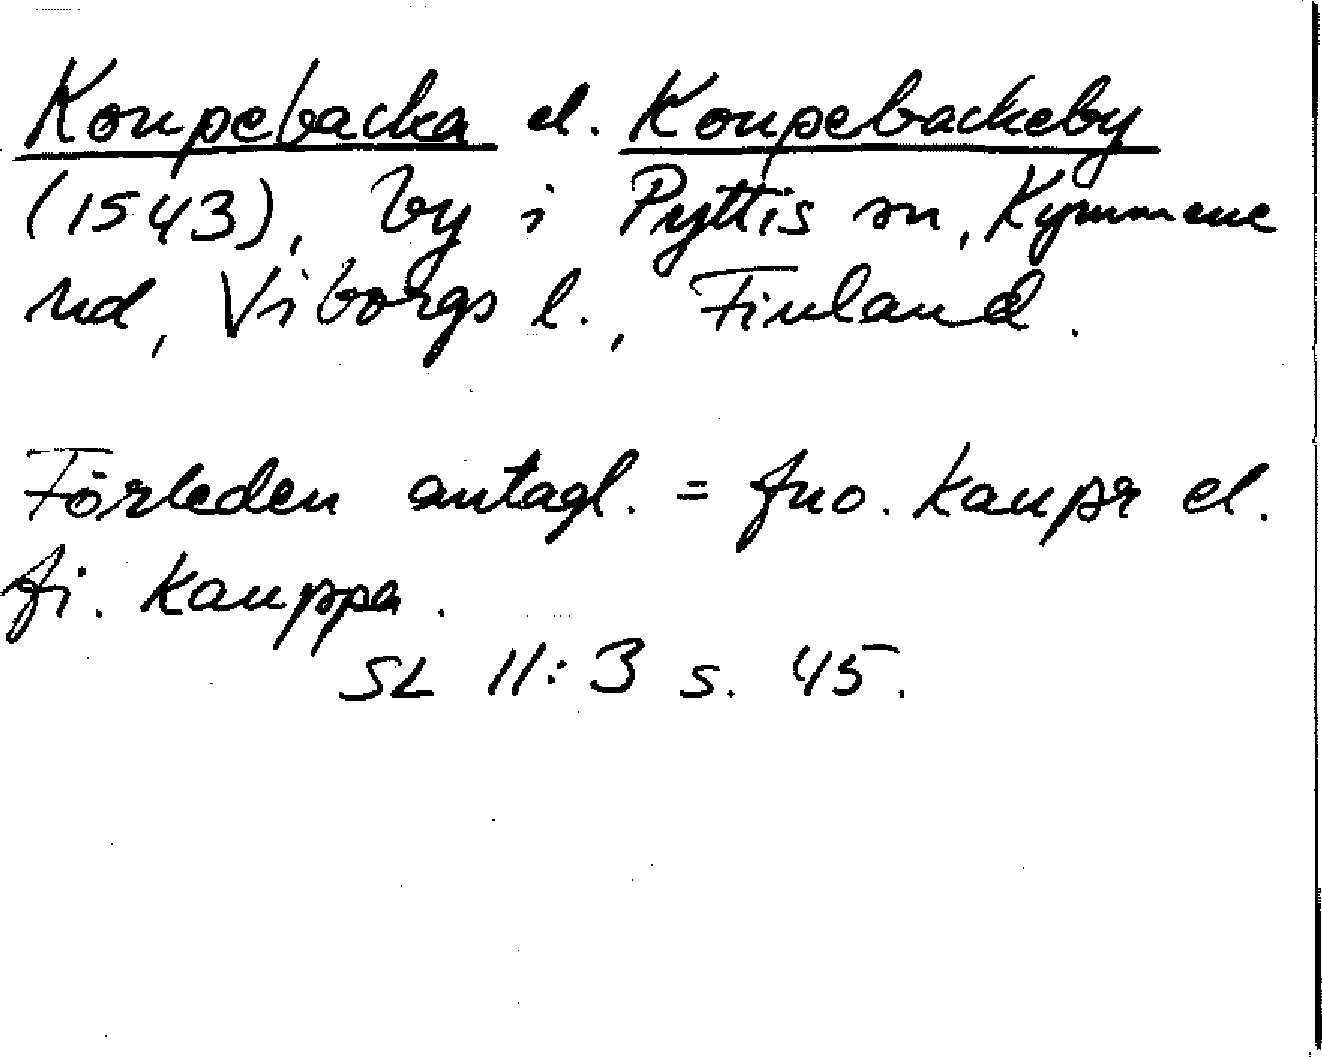 Koupebacka el. Koupebackeby
(1543), by i Pyttis sn, Kymmene
hd, Viborgs l., Finland.
Förleden antagl. = fno. kaupr el.
fi. kauppa.
SL 11:3 s. 45.